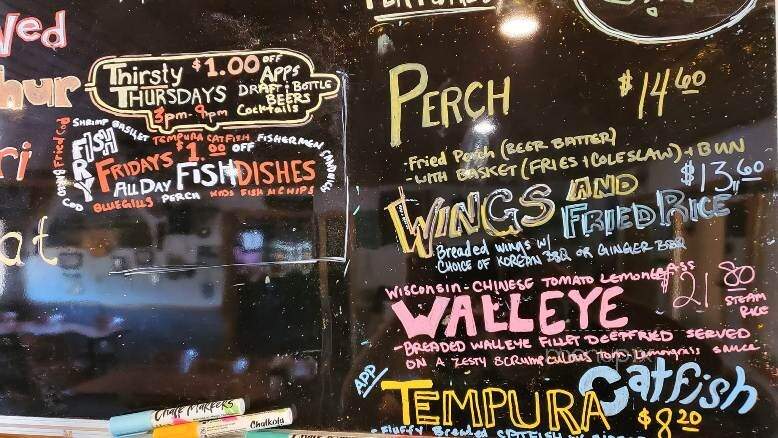 Wed
Thur
Fri
at
Thirsty $1.00 OFF
Thursdays APPS
DRAFT & BOTTLE
BEERS
3pm-9pm Cocktails
SHRIMP BASKET
Baked Fried Cod
COD
FISH
FRY
TEMPURA CATFISH FISHERMEN SANDWICH
FRIDAYS $1.00 OFF
All DAY FISH DISHES
BLUEGILLS PERCH KIDS FISH N CHIPS
PERCH $14.60
-Fried Perch (BEER BATTER)
-WITH BASKET (FRIES + COLESLAW) + BUN
WINGS AND FRIED RICE $13.60
Breaded wings w/
CHOICE OF KOREAN BBQ OR GINGER BBQ
WISCONSIN-CHINESE TOMATO LEMONGRASS
WALLEYE $21.80
STEAM
RICE
-BREADED WALLEYE FILLET DEEPFRIED SERVED
ON A ZESTY SCRUMPCULOUS Tom-Lemongrass SAUCE
APP
TEMPURA Catfish $8.20
-Fluffy Breaded
Chalk Markers
Chalkola